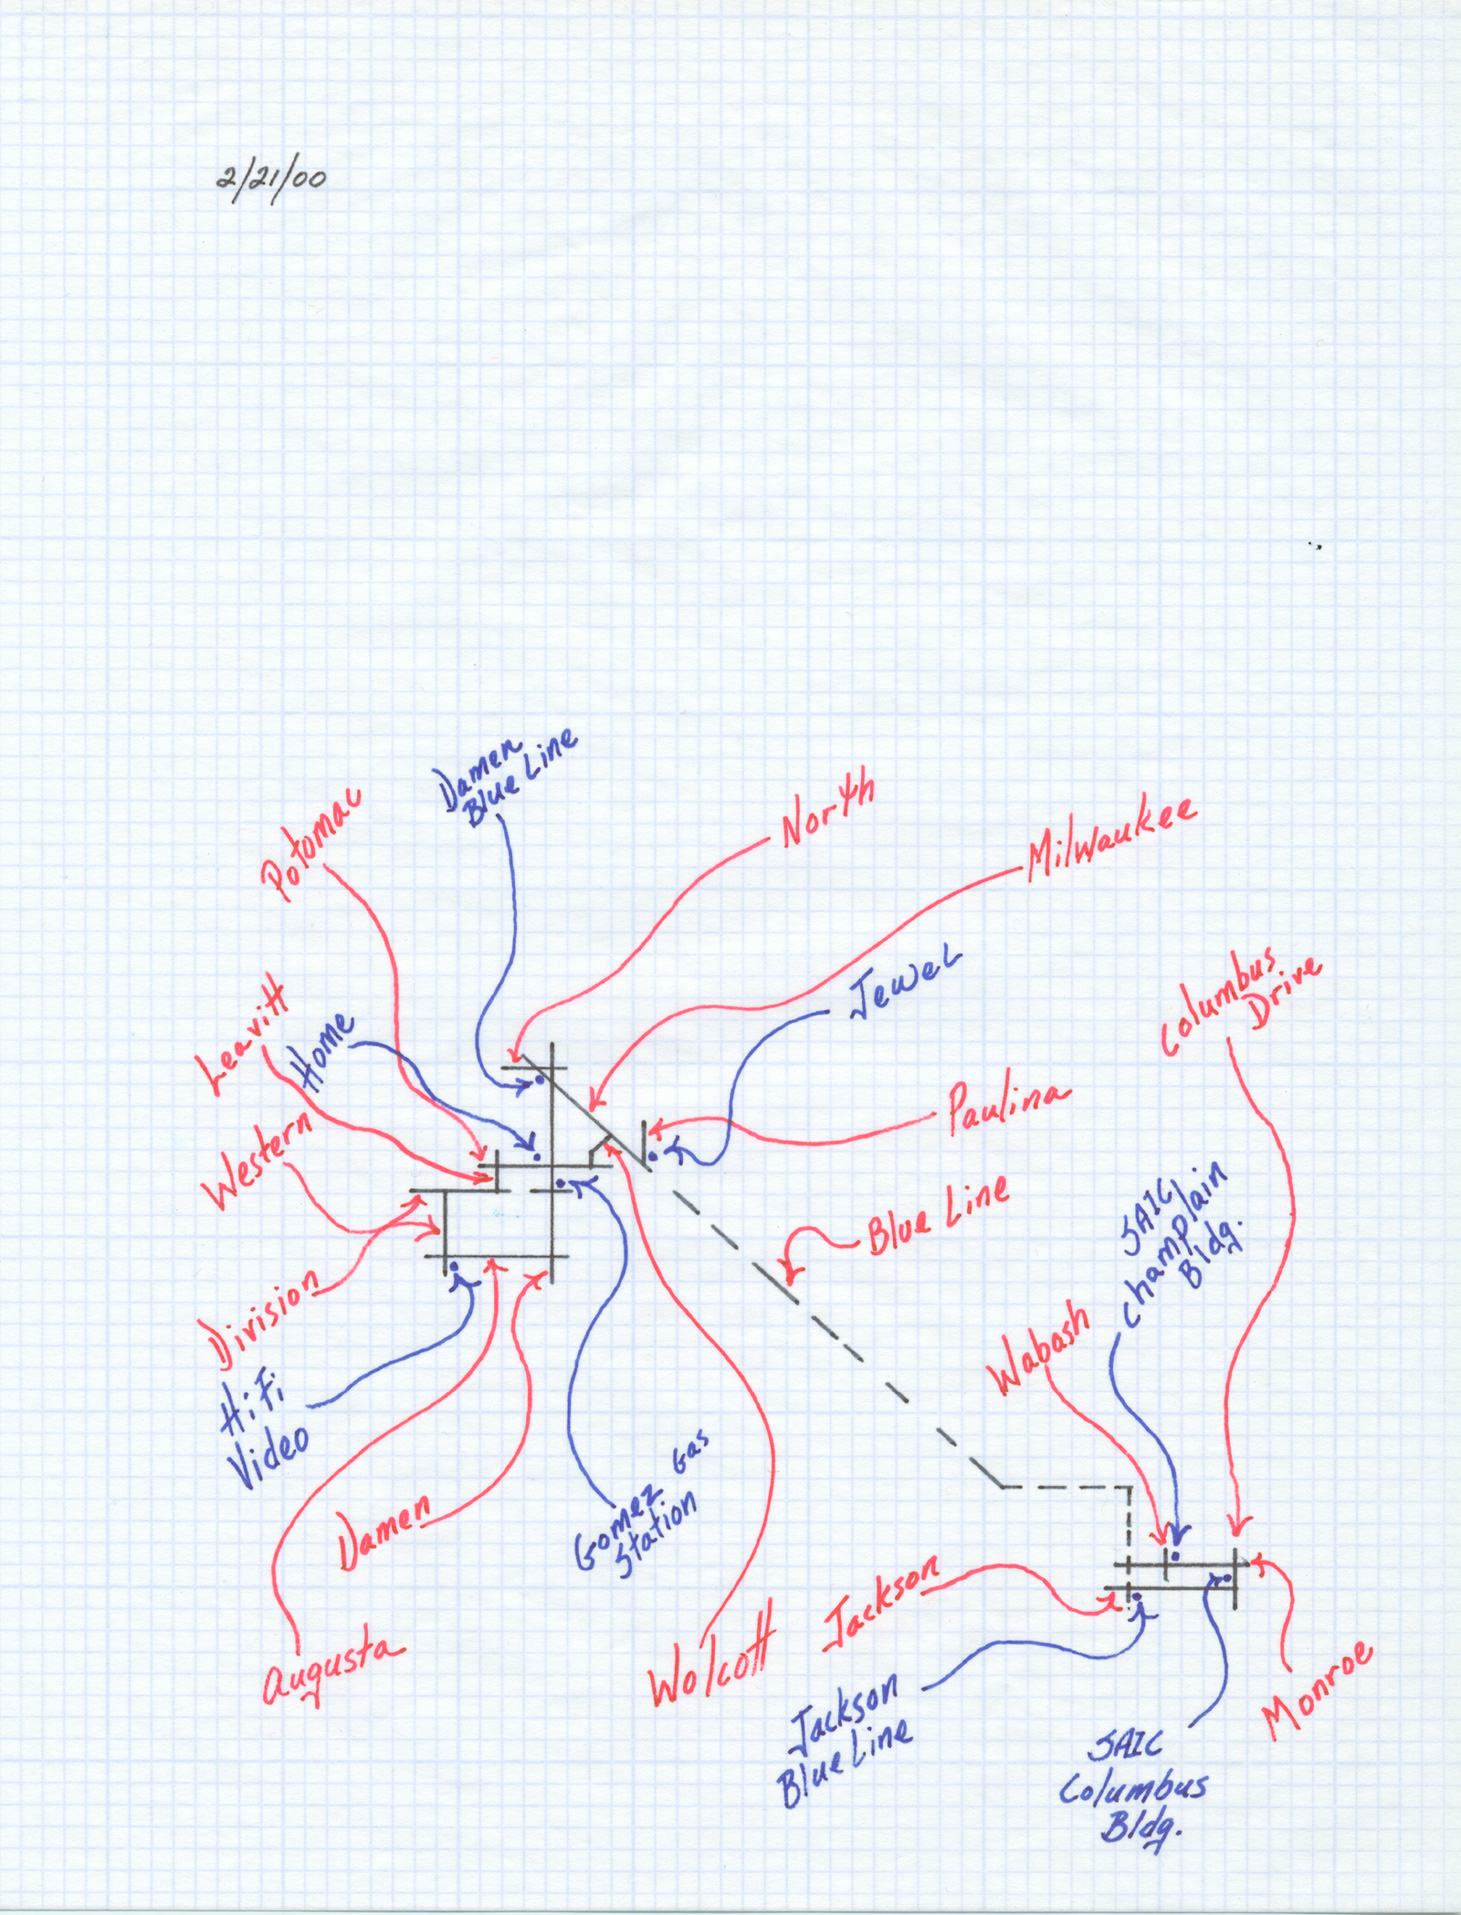 2/21/00
Damen
Blue Line
North
Potomac
Milwaukee
Jewel
Columbus
Drive
Leavitt
Home
Paulina
Western
Blue Line
SAIC
Champlain
Bldg.
Division
Wabash
HiFi
Video
Damen
Gomez Gas
Station
Jackson
Augusta
Wolcott
Monroe
Jackson
Blue Line
SAIC
Columbus
Bldg.